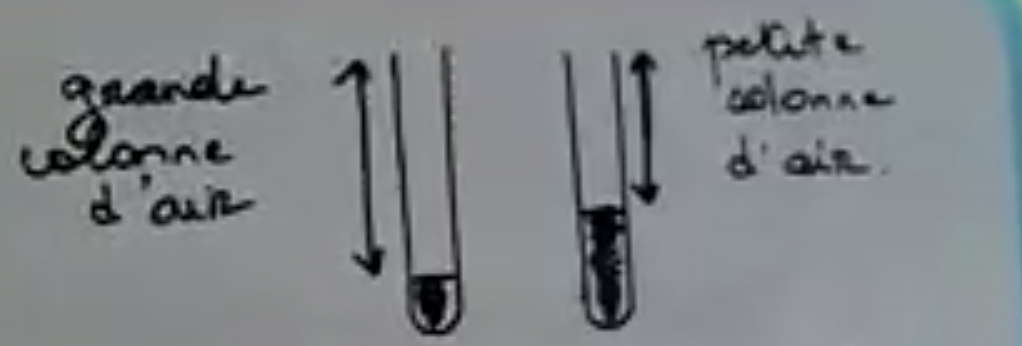 grande
colonne
d'air
petite
colonne
d'air.